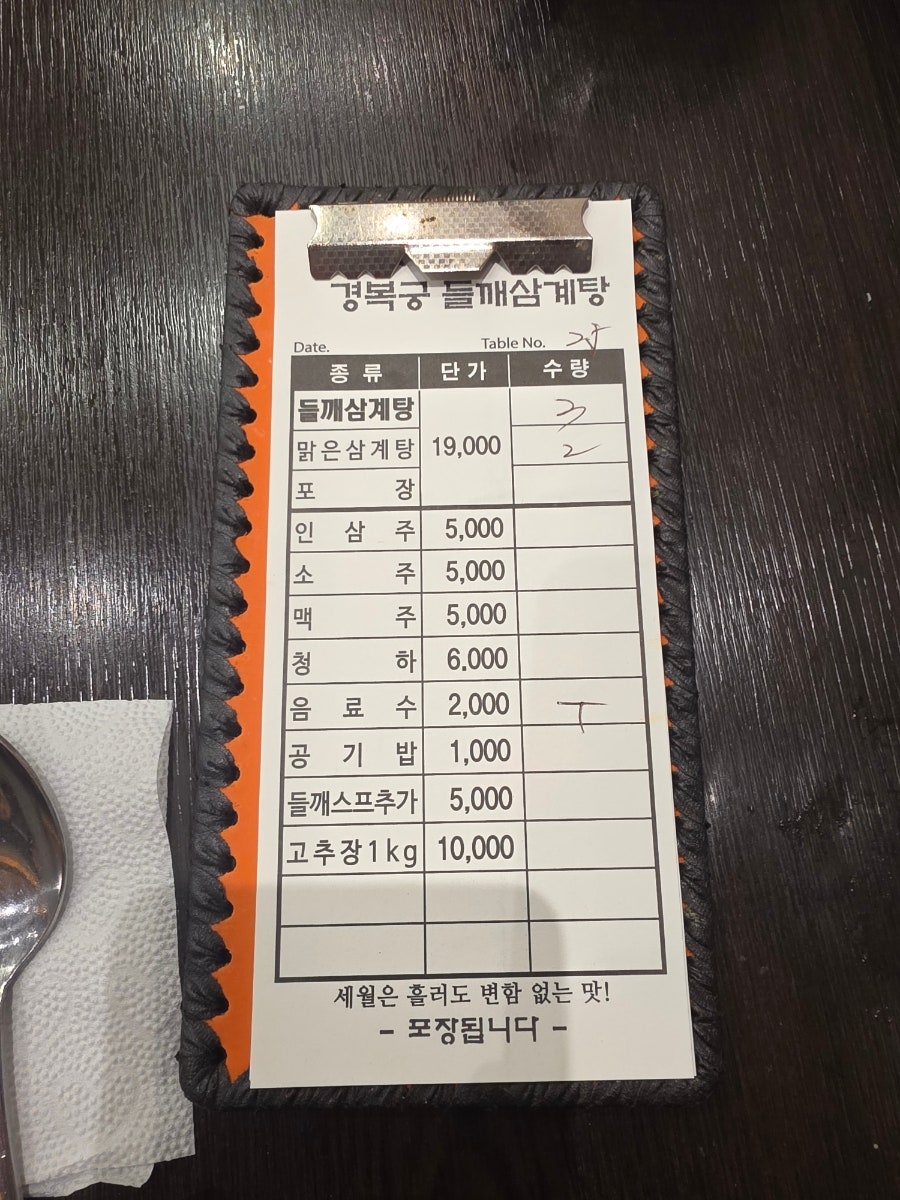 경복궁 들깨삼계탕
Date. Table No.
종 류 단 가 수 량
들깨삼계탕 3
맑은삼계탕 19,000 2
포 장
인 삼 주 5,000
소 주 5,000
맥 주 5,000
청 하 6,000
음 료 수 2,000
공 기 밥 1,000
들깨스프추가 5,000
고추장1kg 10,000
세월은 흘러도 변함 없는 맛!
- 포장됩니다 -